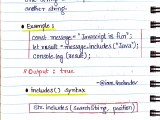 another string.
• Example:
const message = "Javascript is fun";
let result = message.includes("Java");
Console.log (result);
// Output : true
• includes() syntax
str. includes(searchString, position)